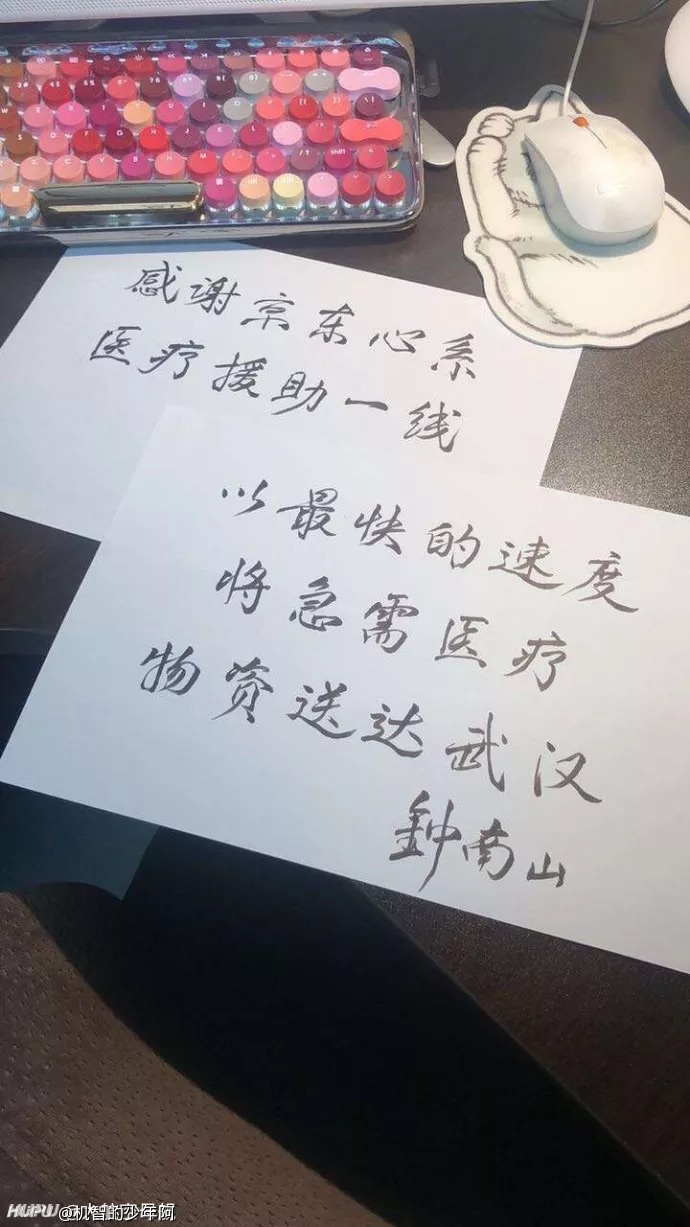 感谢京东心系
医疗援助一线
以最快的速度
将急需医疗
物资送达武汉
鍾南山
HUPU
@机智的少年阿